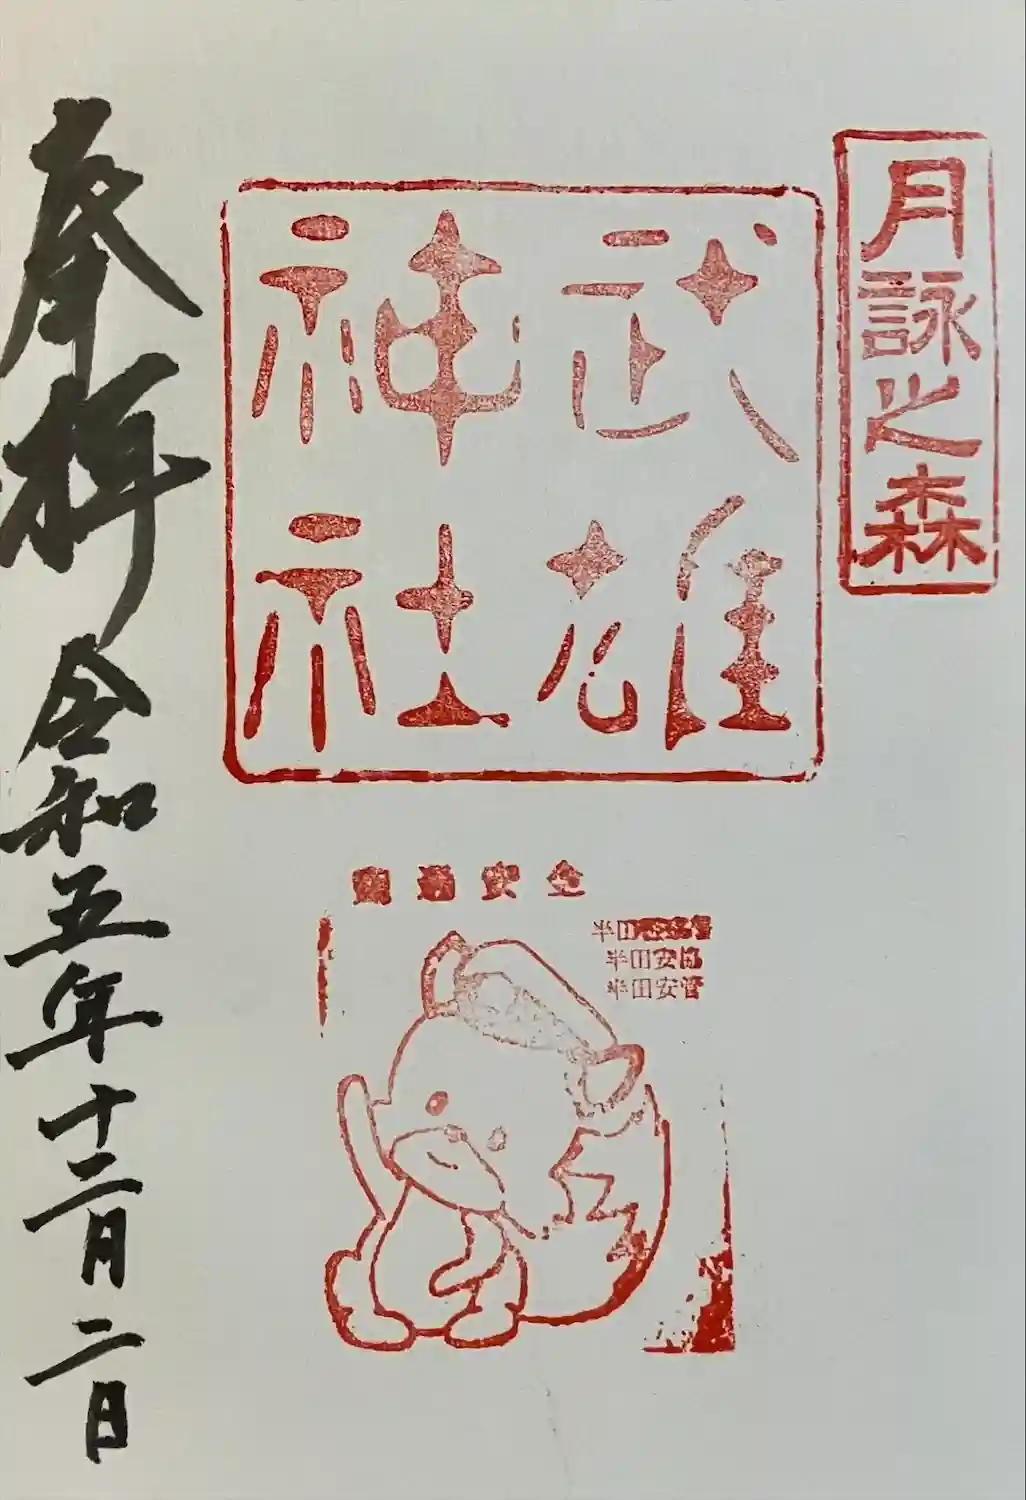 月詠之森
武雄
神社
奉拝 令和五年十二月二日
安全
半田
半田安協
半田安管